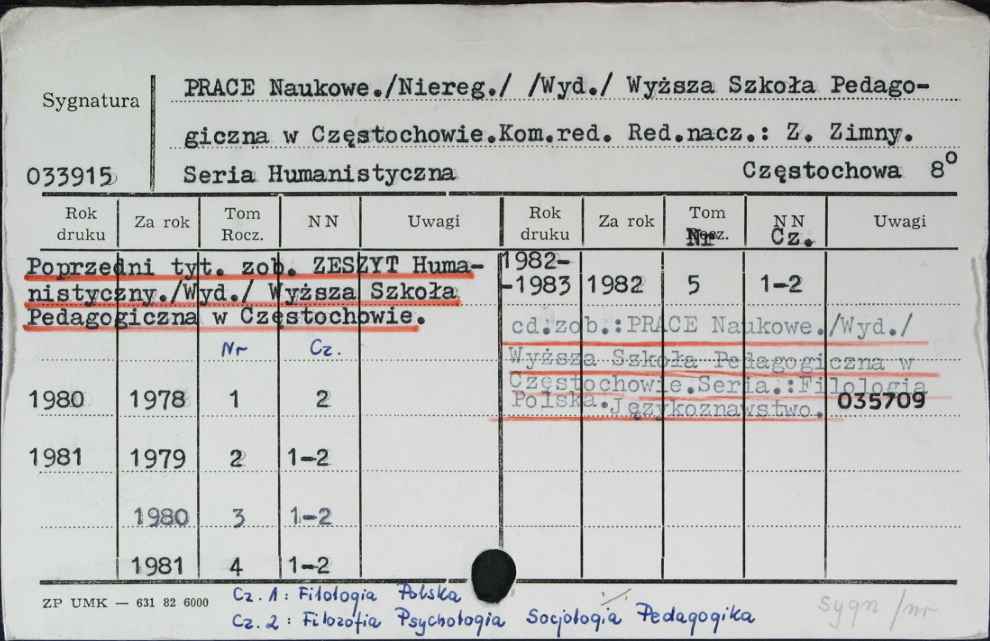 PRACE Naukowe./Niereg./ /Wyd./ Wyższa Szkoła Pedago-
Sygnatura
giczna w Częstochowie.Kom.red. Red.nacz.: Z. Zimny.
033915 Seria Humanistyczna Częstochowa 8°
Rok druku Za rok Tom Rocz. NN Uwagi Rok druku Za rok Tom Rocz. NN Uwagi
Nr Cz.
Poprzedni tyt. zob. ZESZYT Huma-
nistyczny./Wyd./ Wyższa Szkoła
Pedagogiczna w Częstochowie.
Nr Cz.
1980 1978 1 2
1981 1979 2 1-2
1980 3 1-2
1981 4 1-2
1982-
-1983 1982 5 1-2
cd.zob.:PRACE Naukowe./Wyd./
Wyższa Szkoła Pedagogiczna w
Częstochowie.Seria.:Filologia
Polska.Językoznawstwo. 035709
ZP UMK — 631 82 6000
Cz. 1 : Filologia Polska
Cz. 2 : Filozofia Psychologia Socjologia Pedagogika
sygn / nr